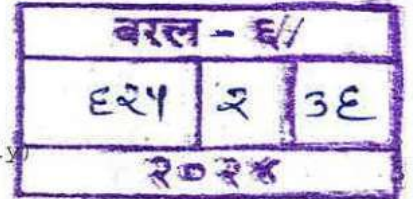 बरल - ६//
६२५ २ ३६
y)
२०२४